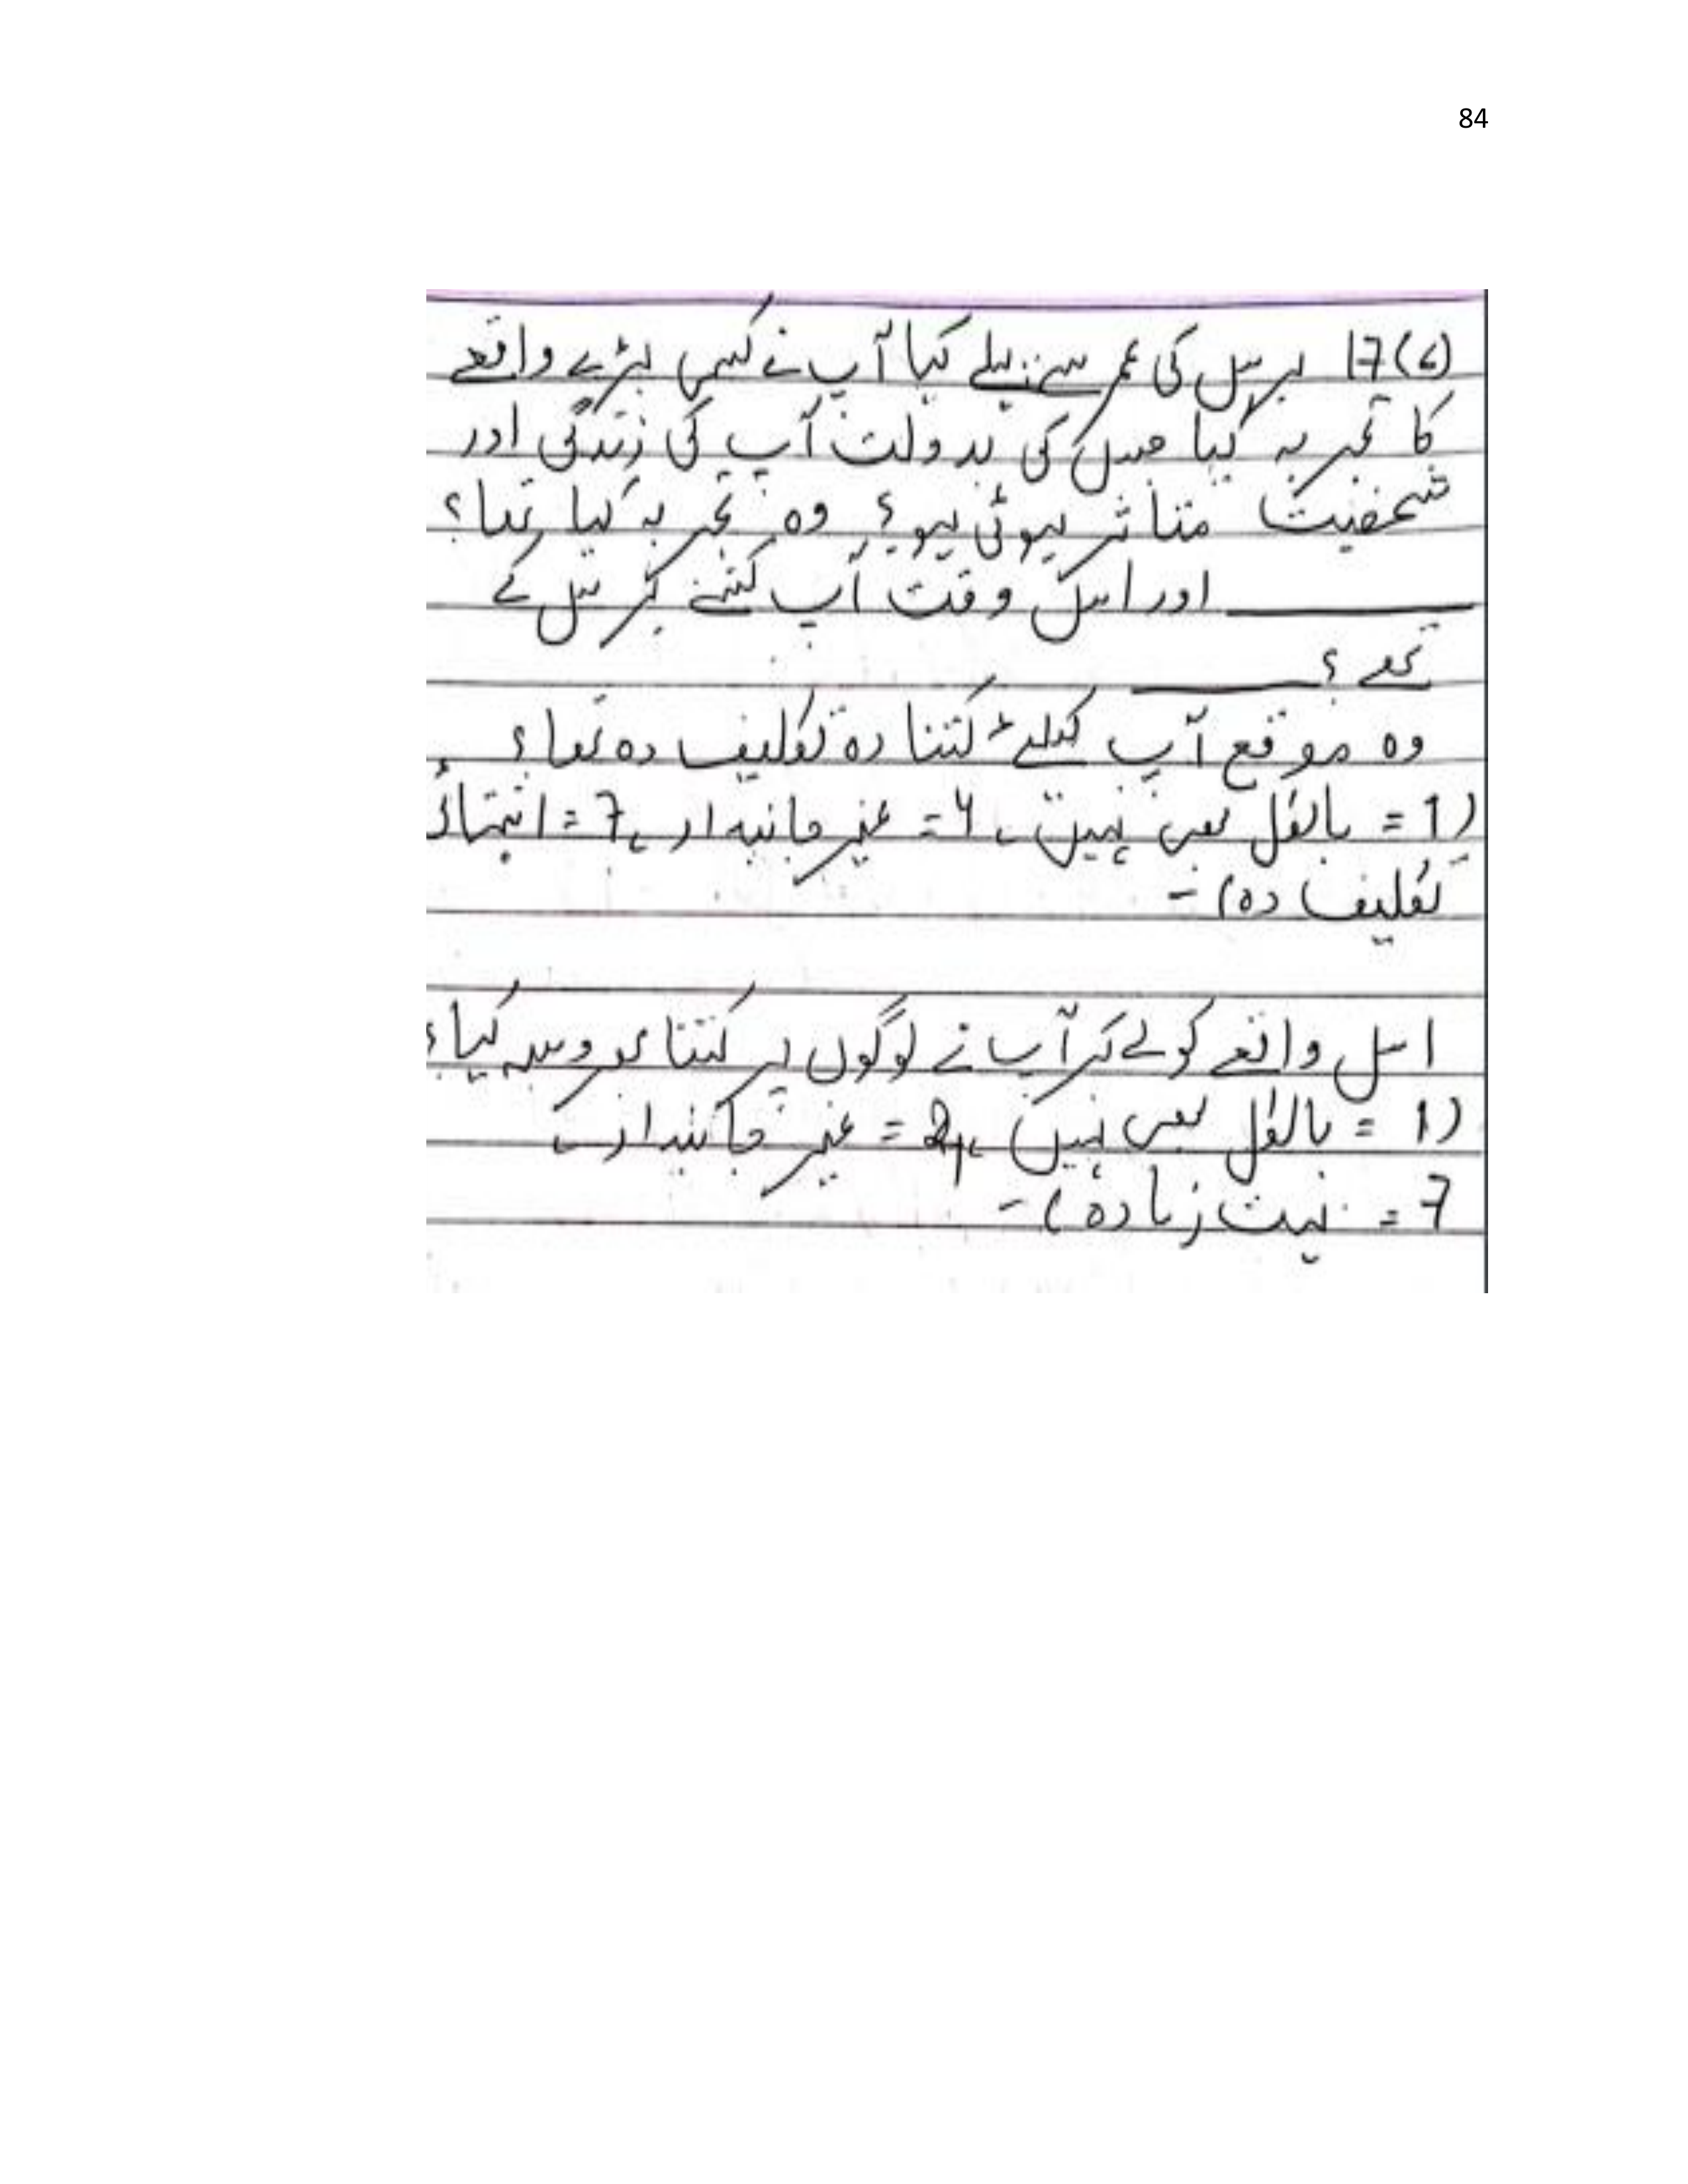 84
(۶) 17 برس کی عمر سے پہلے کیا آپ نے کسی بڑے واقعے
کا تجربہ کیا جس کی بدولت آپ کی زندگی اور
شخصیت متاثر ہوئی ہو؟ وہ تجربہ کیا تھا؟
________ اور اس وقت آپ کتنے برس کے
تھے؟ ________
وہ موقع آپ کیلئے کتنا دہ تکلیف دہ تھا؟
(1 = بالکل بھی نہیں، 4 = غیر جانبدار، 7 = انتہائی
تکلیف دہ)۔
اس واقعے کو لے کر آپ نے لوگوں پر کتنا بھروسہ کیا؟
(1 = بالکل بھی نہیں، 4 = غیر جانبدار،
7 = بہت زیادہ)۔